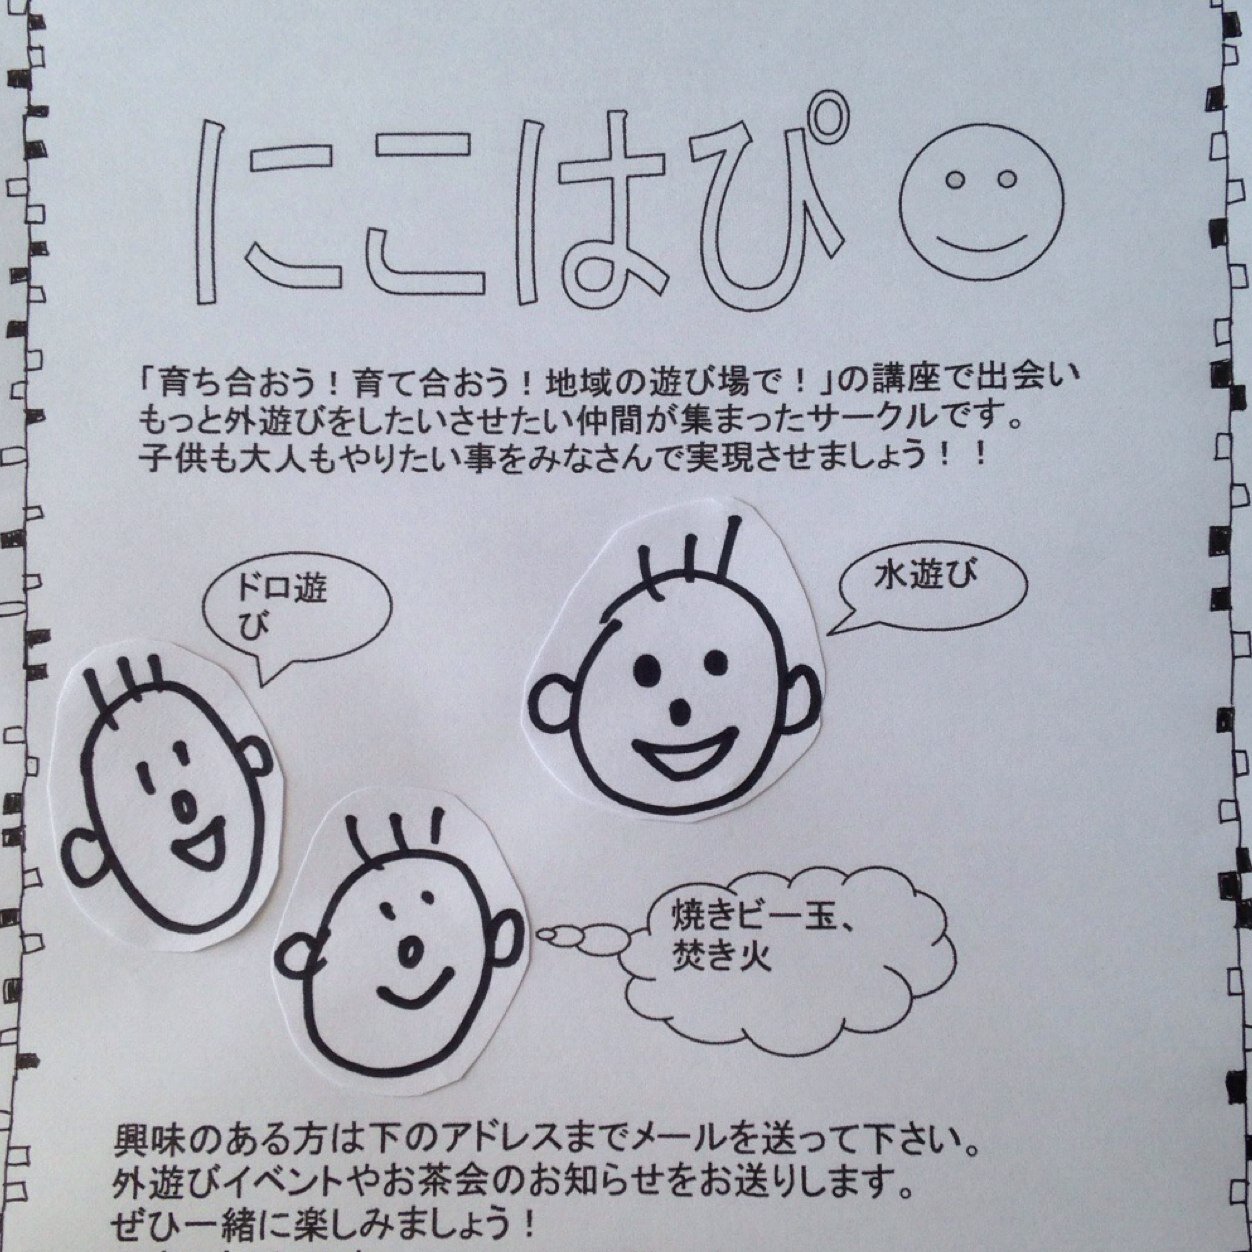 にこはぴ
「育ち合おう！育て合おう！地域の遊び場で！」の講座で出会い
もっと外遊びをしたいさせたい仲間が集まったサークルです。
子供も大人もやりたい事をみなさんで実現させましょう！！
ドロ遊
び
水遊び
焼きビー玉、
焚き火
興味のある方は下のアドレスまでメールを送って下さい。
外遊びイベントやお茶会のお知らせをお送りします。
ぜひ一緒に楽しみましょう！